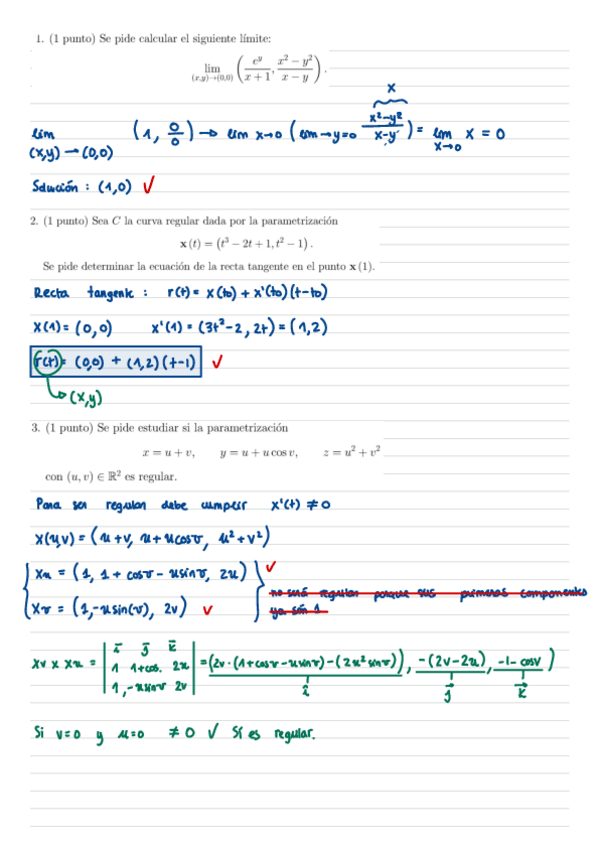 1. (1 punto) Se pide calcular el siguiente límite:
lim (x,y)→(0,0) ( e^y / x + 1 , x² − y² / x − y ) .
x
lim (x,y)→(0,0) (1, 0/0) → lim x→0 ( lim→y=0 x²−y² / x−y ) = lim x→0 x = 0
Solución : (1,0) ✓
2. (1 punto) Sea C la curva regular dada por la parametrización
x (t) = (t³ − 2t + 1, t² − 1) .
Se pide determinar la ecuación de la recta tangente en el punto x (1).
Recta tangente : r(t) = x(to) + x'(to)(t−to)
x(1) = (0,0) x'(1) = (3t²−2, 2t) = (1,2)
r(t) = (0,0) + (1,2)(t−1) ✓
(x,y)
3. (1 punto) Se pide estudiar si la parametrización
x = u + v, y = u + u cos v, z = u² + v²
con (u, v) ∈ ℝ² es regular.
Para ser regular debe cumplir x'(t) ≠ 0
x(u,v) = (u+v, u+ucosv, u²+v²)
xu = (1, 1 + cosv − usinv, 2u) ✓
no será regular porque sus primeras componentes
xv = (1,−u sin(v), 2v) ✓
ya són 1
xv x xu = | i j k | 1 1+cos. 2u | 1,−usinv 2v | = (2v·(1+cosv−usinv)−(2u²sinv)), −(2v−2u), −1−cosv )
i j k
Si v=0 y u=0 ≠ 0 ✓ Sí es regular.